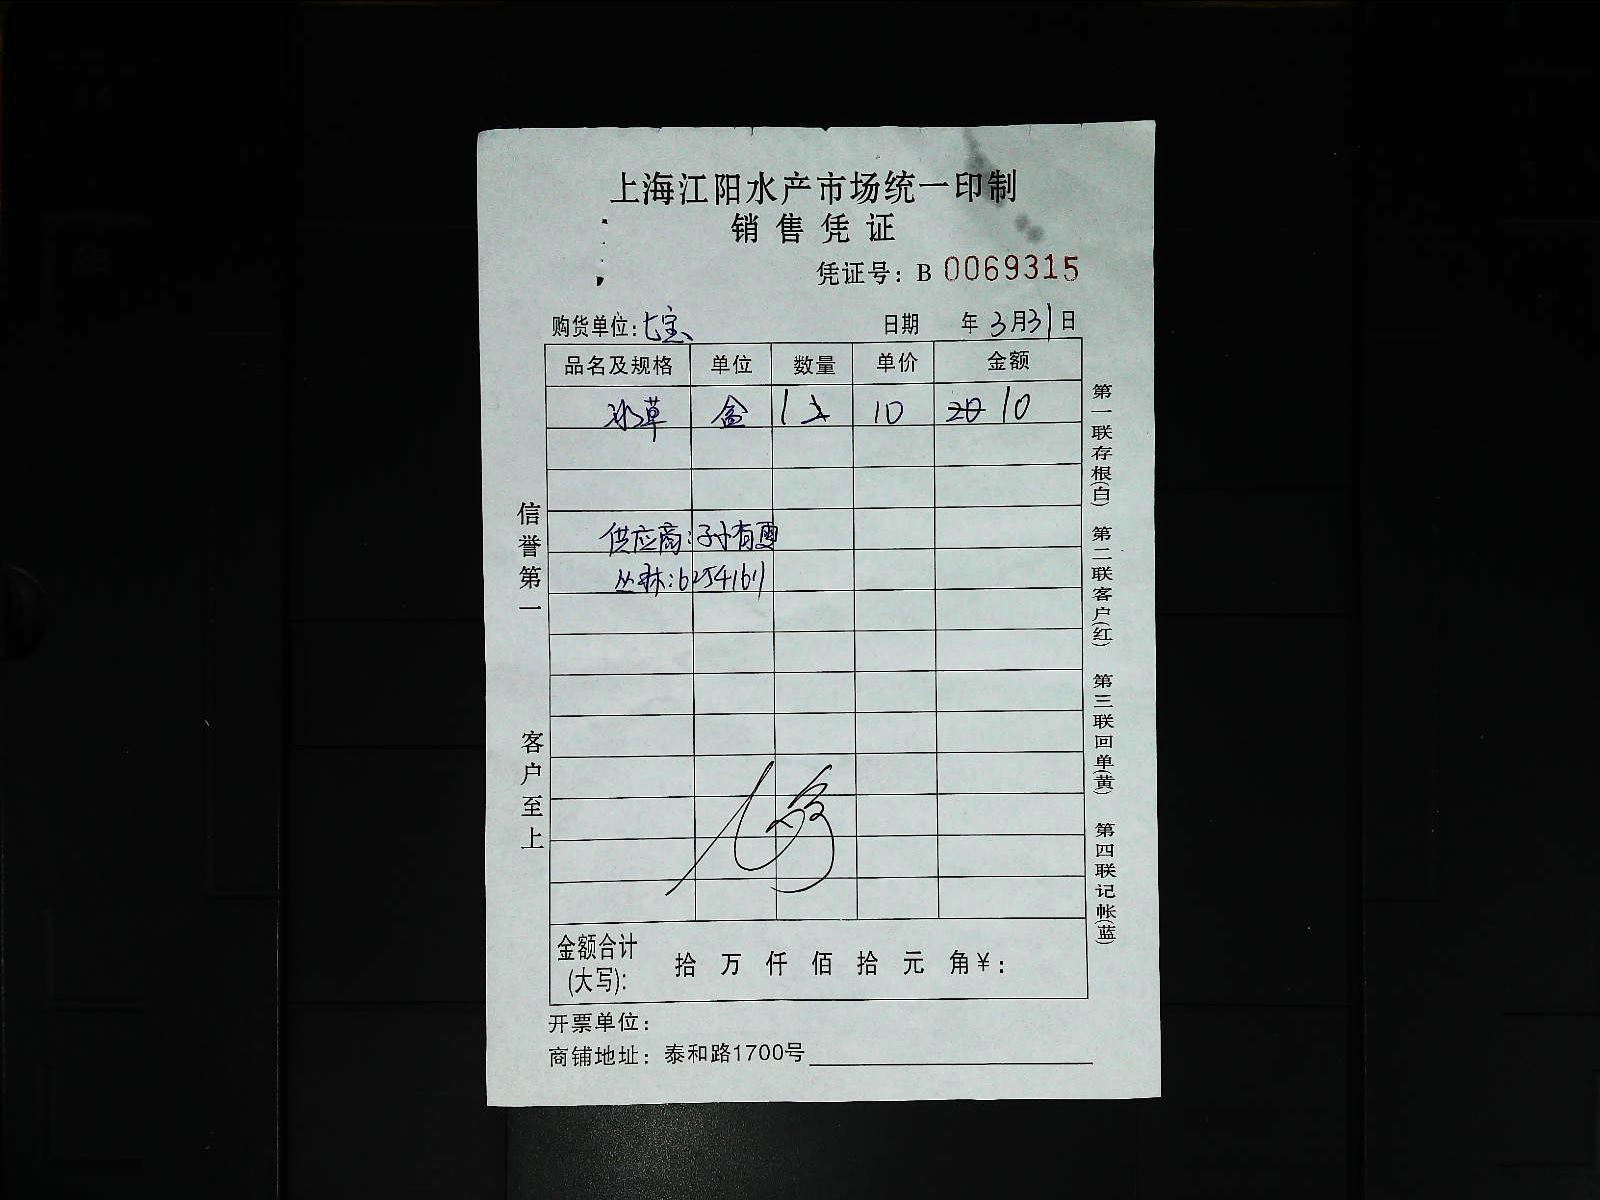 上海江阳水产市场统一印制
销售凭证
凭证号：B 0069315
购货单位：七宝 日期 年 3月31日
品名及规格 单位 数量 单价 金额
水草 盒 1 10 20 10
供应商：孙有
丛林：6254161
金额合计(大写)： 拾 万 仟 佰 拾 元 角 ¥：
开票单位：
商铺地址：泰和路1700号
信誉第一 客户至上
第一联存根(白) 第二联客户(红) 第三联回单(黄) 第四联记帐(蓝)